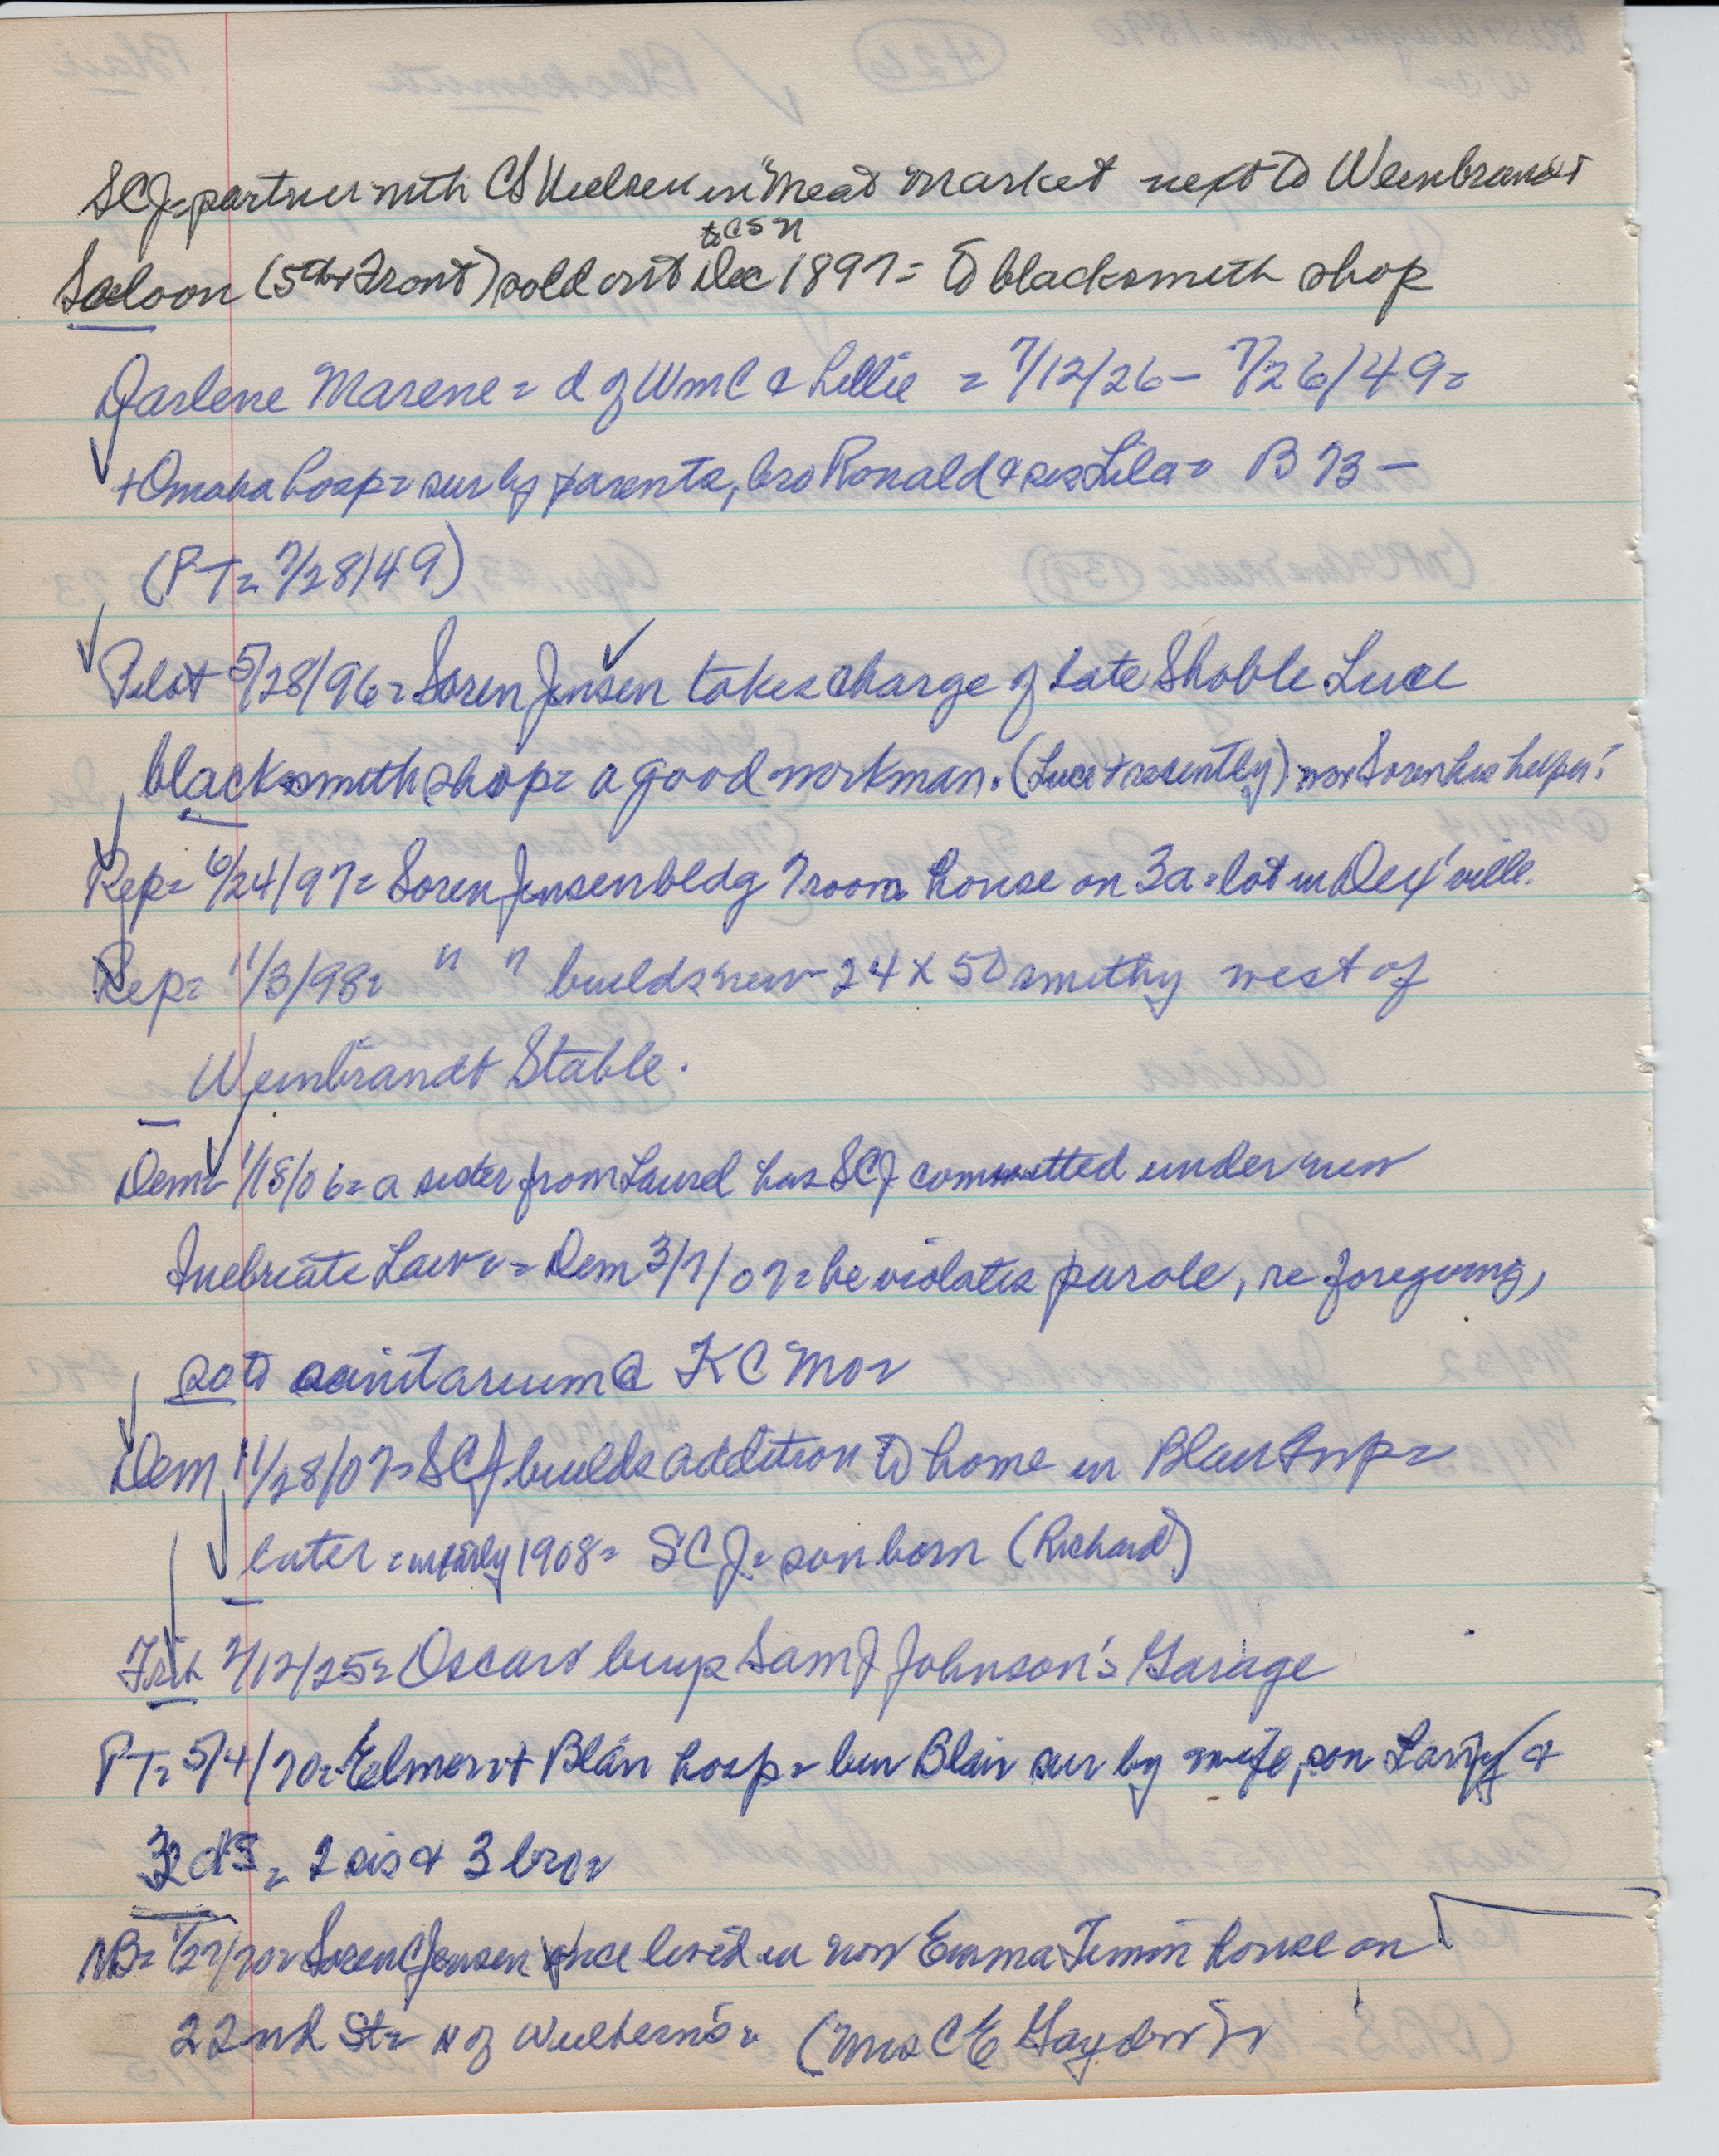 SCJ = partner with CS Nielsen in "Meat Market next to Weinbrandt
to CSN
Saloon (5th + Front) sold out Dec 1897 = to blacksmith shop
Darlene Marene = d of Wm C & Lillie = 7/12/26 - 7/26/49 =
+ Omaha hosp = sur by parents, bro Ronald & sis Lila = B 73 -
(PT = 7/28/49)
Pilot 5/28/96 = Soren Jensen takes charge of late Shoble Luce
blacksmith shop = a good workman. (Luce + recently) was Soren his helper?
Rep = 6/24/97 = Soren Jensen bldg 7 room house on 3a = lot in Dex'ville.
Rep = 11/3/98 = " " builds new 24 x 50 smithy west of
Weinbrandt Stable.
Dem = 1/18/06 = a sister from Laurel has SCJ committed under new
Inebriate Law = = Dem 3/7/07 = he violates parole, re foregoing,
so to sanitarium @ KC Mo =
Dem 11/28/07 = SCJ builds addition to home in Blair Twp =
later = in early 1908 = SCJ = son born (Richard)
2/12/25 = Oscar buys Sam J Johnson's Garage
PT = 5/4/70 = Elmer + Blair hosp = bur Blair sur by wife, son Larry &
3 ds = 2 sis & 3 bro =
NB = 1/27/70 = Soren C Jensen once lived in now Emma Timm house on
22nd St = N of (Mrs C E Gaydou) =